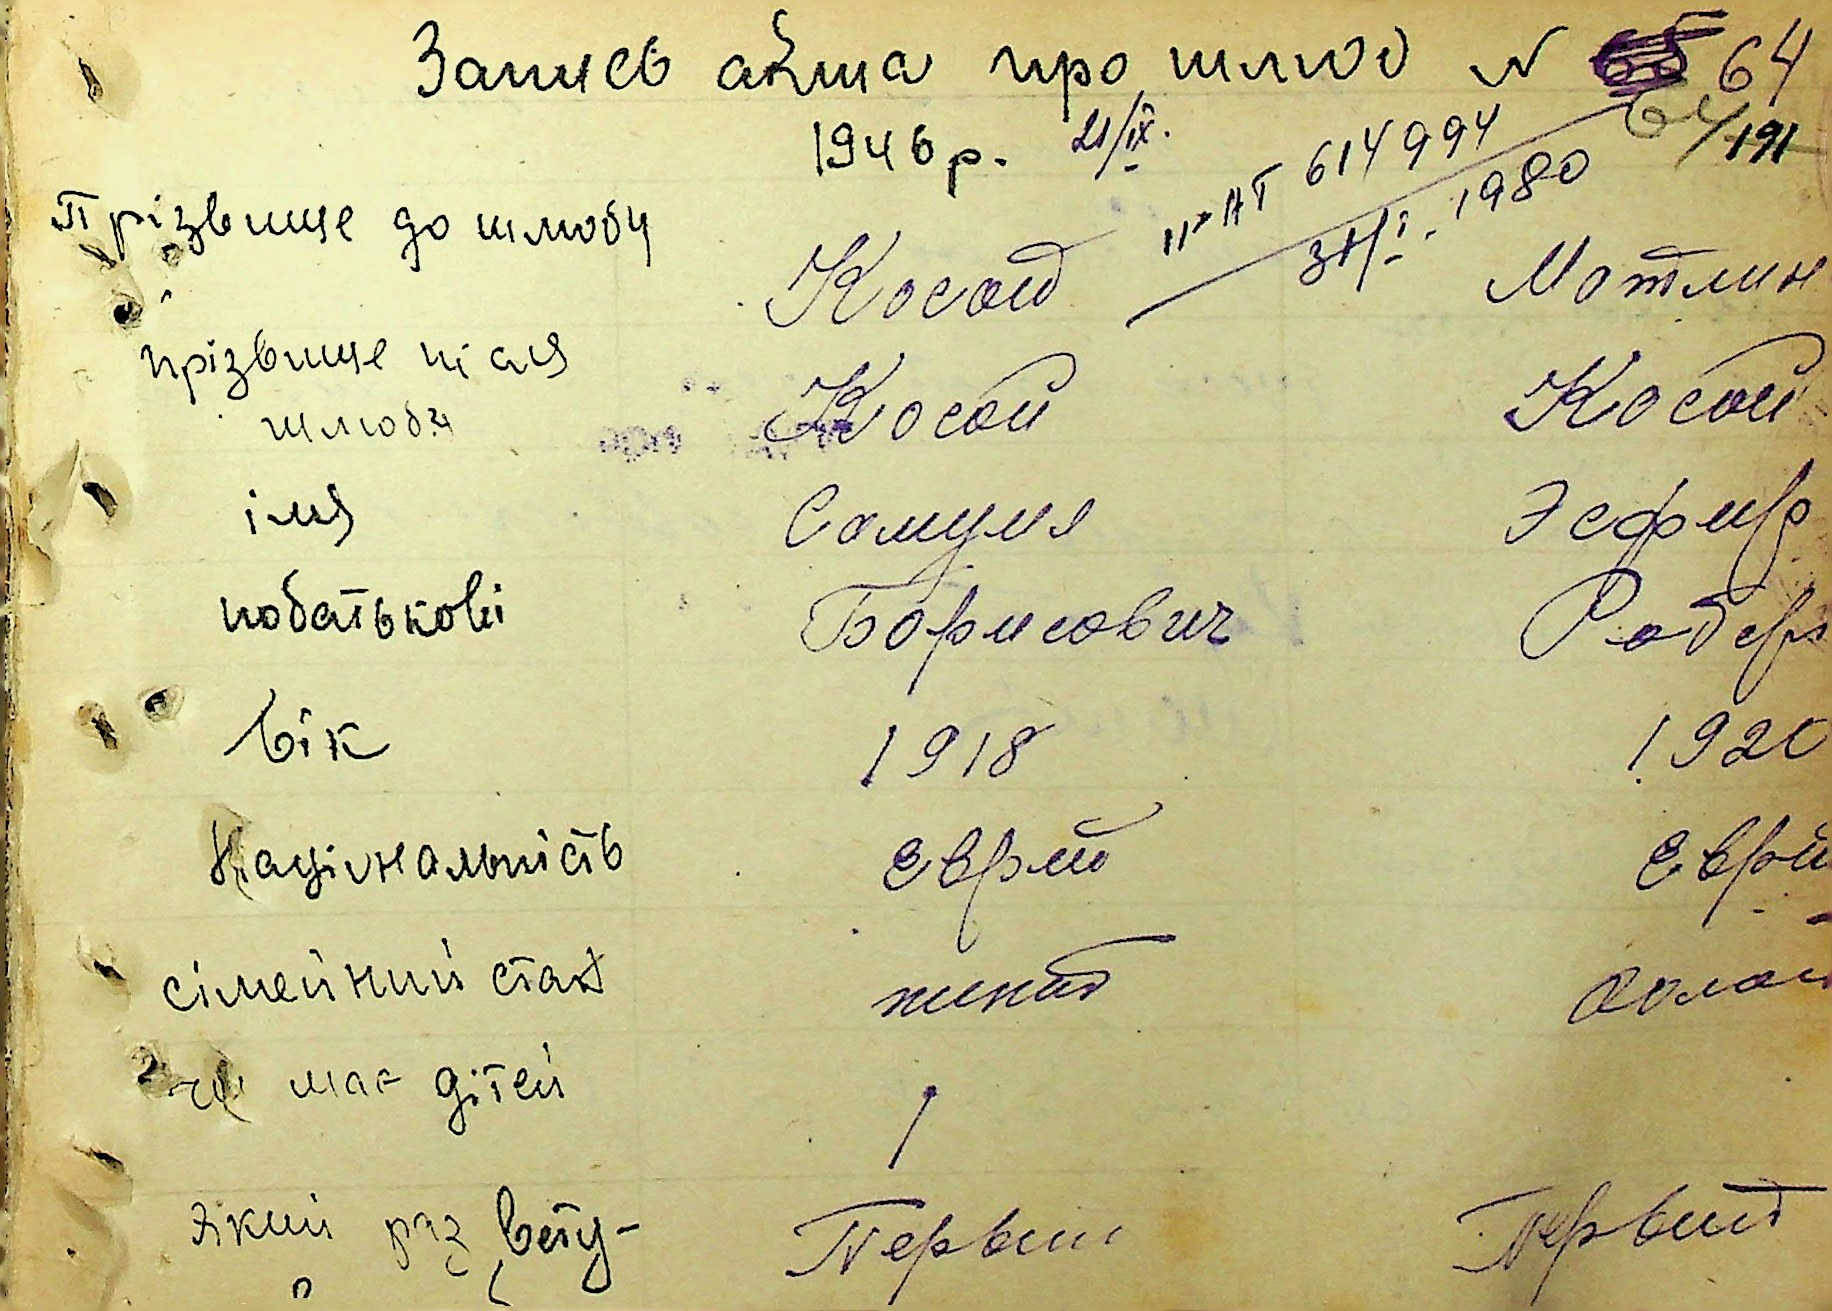 Запись акта про шлюб N 64
1946 р. 21/IX. 64/191
II-НТ 614994
31/I. 1980
Прізвище до шлюбу Косой Мотлин
прізвище після Косой Косой
шлюбу
імя Самуил Эсфир
побатькові Борисович
вік 1918 1920
Націнальність Еврей Еврей
сімейний стан женат
чи має дітей 1
який раз всту- Первый Первый